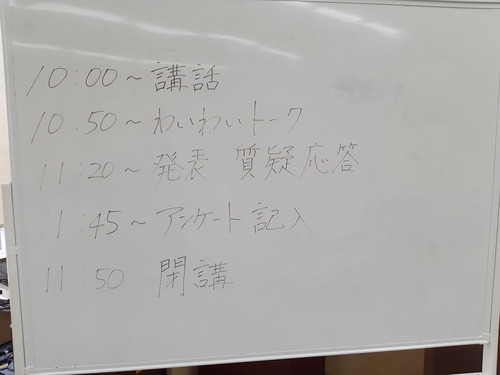 10:00～講話
10:50～わいわいトーク
11:20～発表 質疑応答
1:45～アンケート記入
11:50 閉講